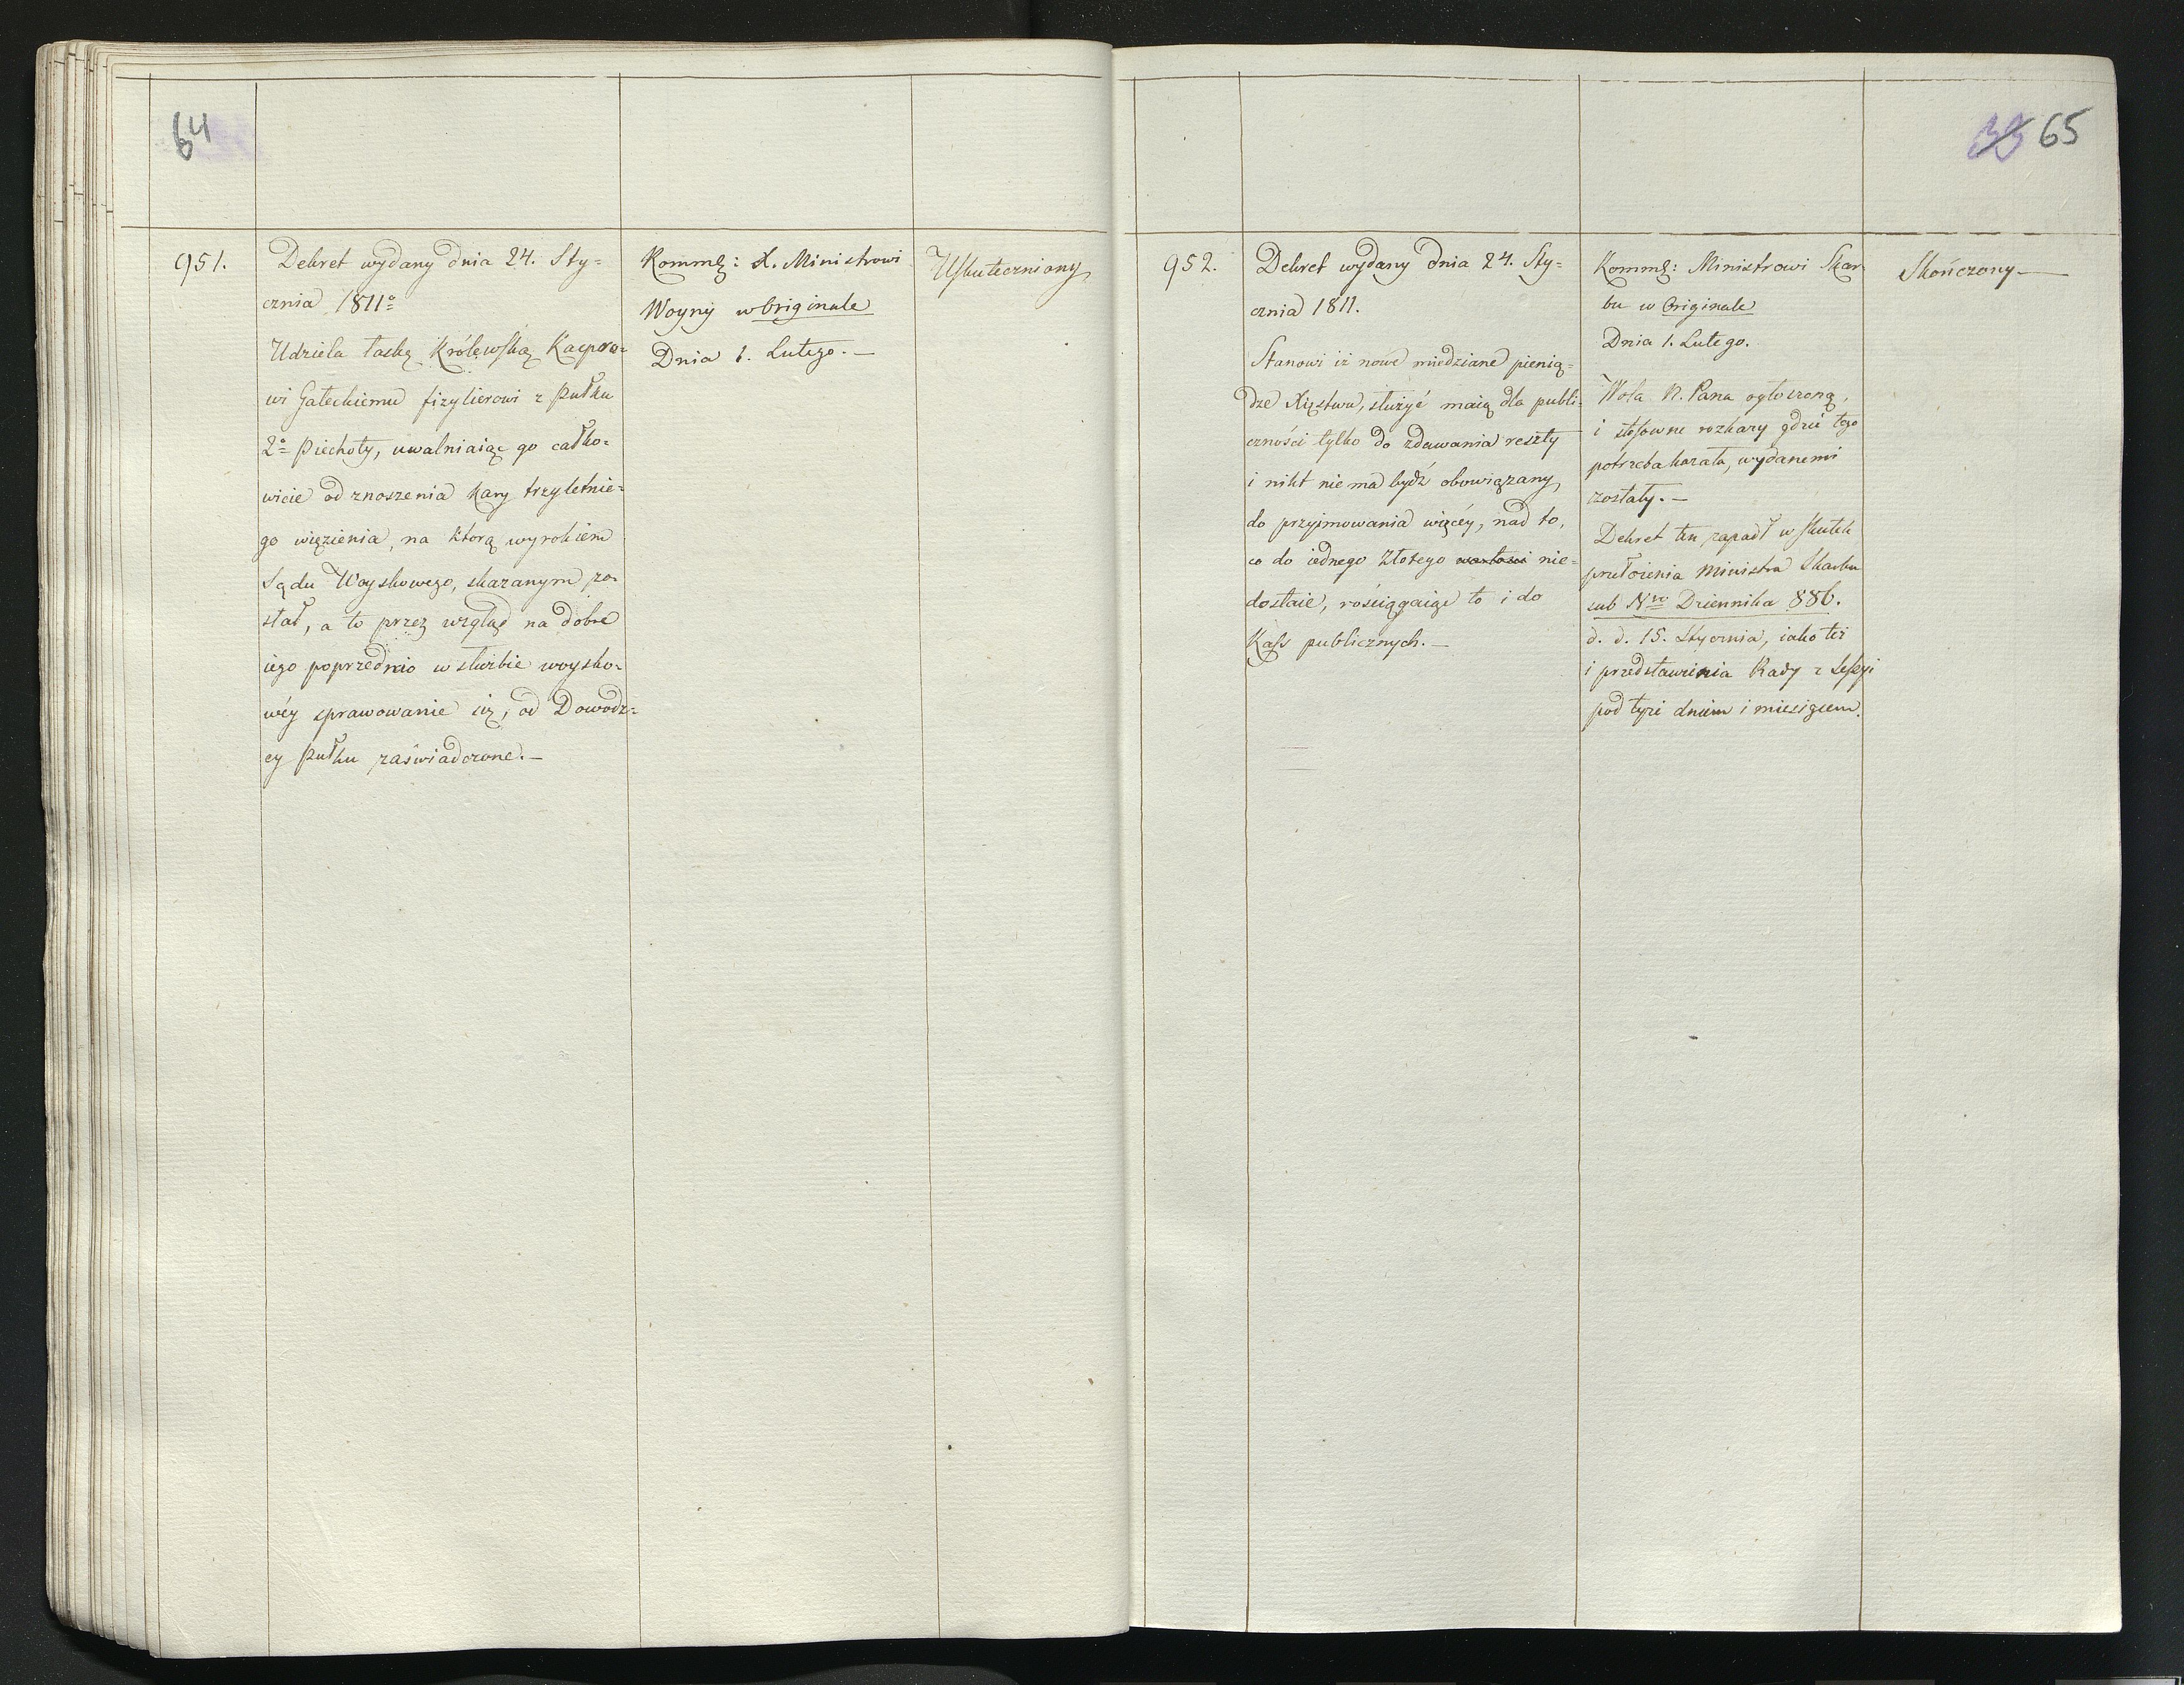 64
951.
Dekret wydany dnia 24. Sty=
cznia 1811º
Udziela łaskę Królewską Kacpro=
wi Gałeckiemu fizylierowi z Pułku
2º Piechoty, uwalniaiąc go całko=
wicie od znoszenia kary trzyletnie=
go więzienia, na którą wyrokiem
Sądu Woyskowego, skazanym zo=
stał, a to przez wzgląd na dobre
iego poprzednio w służbie woysko=
wéy sprawowanie się, od Dowodz=
cy Pułku zaświadczone.—
X. Ministrowi
Woyny w Originale
Dnia 1. Lutego.—
Uskuteczniony
33 65
952.
Dekret wydany dnia 24. Sty=
cznia 1811.
Stanowi iż nowe miedziane pienią=
dze Xięstwa, służyć maią dla publi=
czności tylko do zdawania reszty
i nikt nie ma bydź obowiązany,
do przyimowania więcéy, nad to,
co do iednego Złotego wartości nie=
dostaie, rościągaiąc to i do
Kass publicznych.—
Ministrowi Skar
bu w Originale
Dnia 1. Lutego.
Wola N. Pana ogłoszoną,
i stosowne rozkazy gdzie tego
potrzeba kazała, wydanemi
zostały.—
Dekret ten zapadł w skutek
przełożenia Ministra Skarbu
sub Nro Dziennika 886.
d. d. 15. Stycznia, iako też
i przedstawienia Rady z Sessyi
pod tymże dniem i miesiącem.
Skończony—